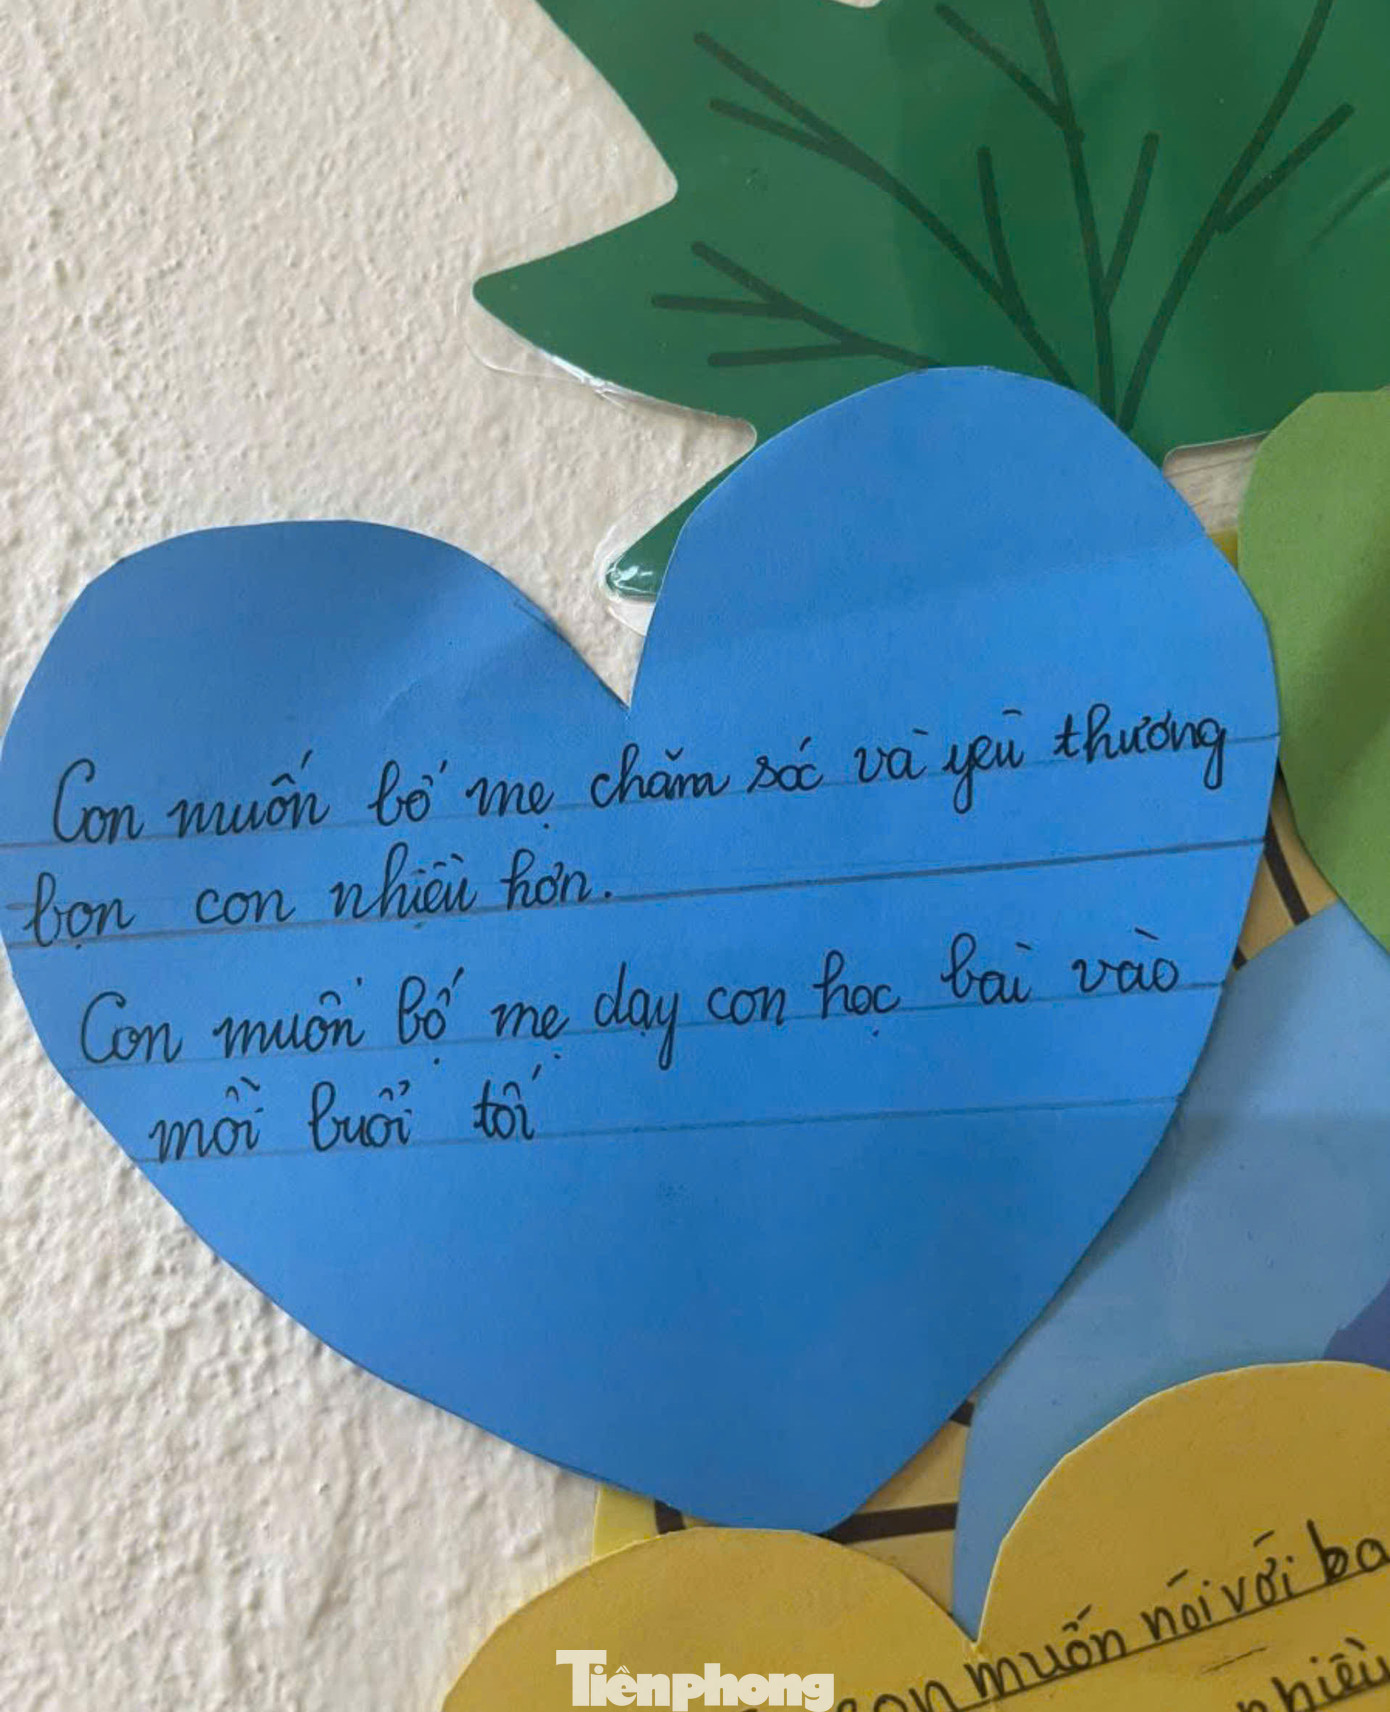 Con muốn bố mẹ chăm sóc và yêu thương
bọn con nhiều hơn.
Con muốn bố mẹ dạy con học bài vào
mỗi buổi tối
con muốn nói với ba
nhiều
Tiênphong